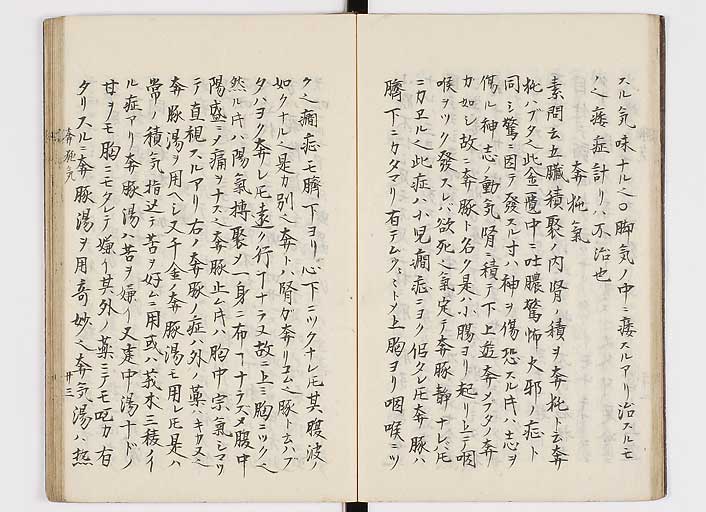 スル気味ナル也〇脚気ノ中ニ痿スルアリ治スルモ
ノ也痿症計リハ不治也
奔㹠氣
素問云五臓積聚ノ内腎ノ積ヲ奔㹠ト云奔
㹠ハブタ也此金匱中ニ吐膿驚怖火邪ノ症ト
同シ驚ニ因テ發スル寸ハ神ヲ傷恐スル片ハ志ヲ
傷ル神志ノ動気腎ニ積テ下上逆奔スブタノ奔
カ如シ故ニ奔豚ト名ク是ハ小腸ヨリ起リ上テ咽
喉ヲツク發スレハ欲死也氣定テ奔豚静ナレ氏
ニカヱル也此症ハ小児癇症ニヨク佀タレ氏奔豚ハ
臍下ニカタマリ有テムクミトメ上胸ヨリ咽喉ニツ
ク也癇症モ臍下ヨリ心下ニツクナレ氏其腹波ノ
如クナル也是カ別也奔トハ腎ガ奔リコム也豚ト云ハブ
タハヨク奔レ氏遠ク行ヿナラヌ故ニ上ミ胸ニツク也
然ル片ハ陽氣摶聚メ一身ニ布ヿナラズメ腹中
陽盛ニメ痛ヲナス也奔豚止ム片ハ胸中宗氣シマツ
テ直視スルアリ右ノ奔豚ノ症ハ外ノ薬ハキカヌ也
奔豚湯ヲ用ヘシ又千金ノ奔豚湯モ用レ氏是ハ
常ノ積気指込テ苦ヲ好ムニ用或ハ莪朮三稜ノイ
ル症アリ奔豚湯ハ苦ヲ嫌イ又建中湯ナドノ
甘ヲモ胸ニモタレテ嫌イ其外ノ薬ニテモ吃カ有
タリスルニ奔豚湯ヲ用奇妙也奔気湯ハ熱
奔㹠気
廿三